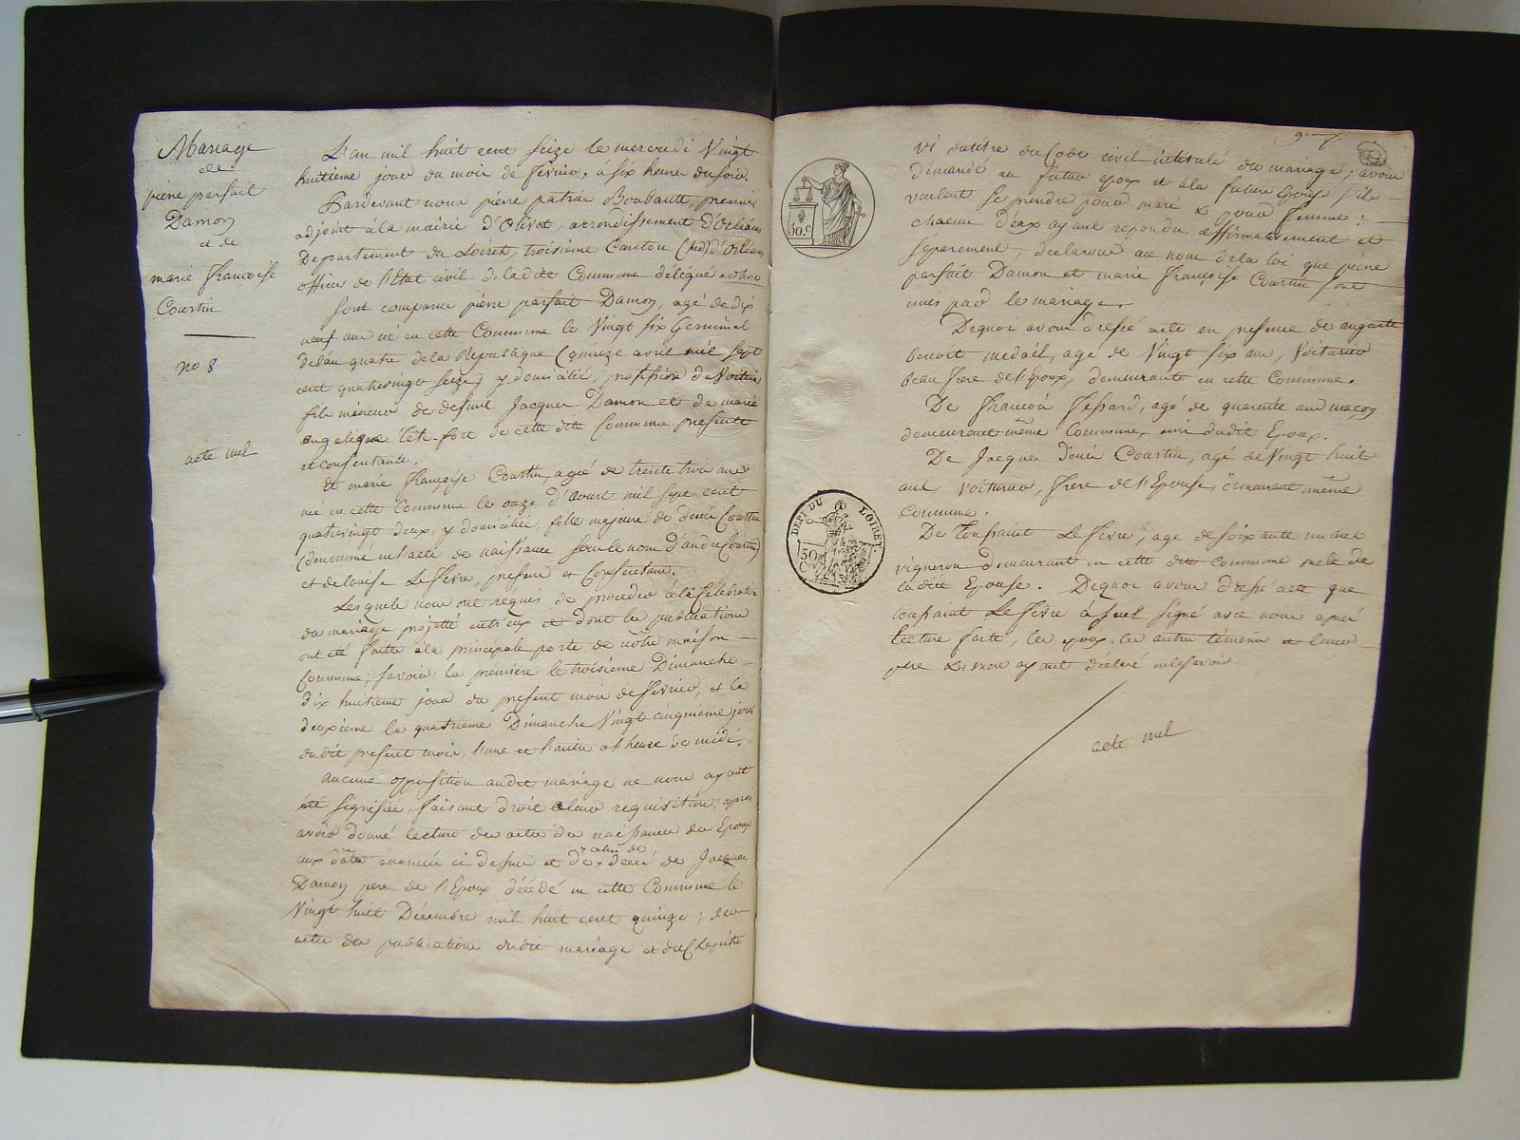 Mariage
de
pierre parfait
Damon
et de
marie françoise
Courtin
no 8
acte nul
L'an mil huit cent seize le mercredi Vingt
huitieme jour du mois de fevrier, à six heures du soir.
Pardevant nous pierre patrice Boubault, premier
adjoint à la mairie d'Olivet, arrondissement d'Orléans
Departement du Loiret, troisième Canton (sud) d'Orléans
officier de l'Etat civil de ladite Commune délégué
Sont comparus pierre parfait Damon, agé de dix
neuf ans né en cette Commune le Vingt six Germinal
de l'an quatre de la République (quinze avril mil sept
cent quatrevingt seize) y domicilié, profession de Voiturier
fils mineur de defunt Jacques Damon et de marie
angelique tête-fort de cette dite Commune presente
et consentante.
Et marie françoise Courtin, agée de trente trois ans
née en cette Commune le onze d'Aout mil sept cent
quatrevingt deux, y domiciliée, fille majeure de denis Courtin
(denommé en l'acte de naissance sous le nom d'andré Courtin)
et de louise LeFevre, presens et Consentans.
Lesquels nous ont requis de proceder à la Célébration
du mariage projetté entr'eux et dont les publications
ont été faites à la principale porte de notre maison
Commune; savoir la premiere le troisieme Dimanche
dix huitieme jour du present mois de fevrier, et la
deuxieme le quatrieme Dimanche Vingt cinquieme jour
dudit present mois, l'une et l'autre à l'heure de midi.
Aucune opposition audit mariage ne nous ayant
été signifiée, faisant droit à leur requisition, apres
avoir donné lecture des actes de naissance des Epoux
aux dates enoncées ci dessus et de celui de décès de Jacques
Damon pere de l'Epoux décédé en cette Commune le
Vingt huit Décembre mil huit cent quinze; des
actes des publications dudit mariage et du Chapitre
VI du titre du Code civil intitulé du mariage; avons
demandé au futur epoux et à la future Epouse s'ils
veulent se prendre pour mari & pour femme:
chacun d'eux ayant repondu affirmativement et
séparement, declarons au nom de la loi que pierre
parfait Damon et marie françoise Courtin sont
unis par le mariage.
De quoi avons dressé acte en presence de auguste
benoit medail, agé de Vingt six ans, Voiturier
beau frere de l'Epoux, demeurant en cette Commune.
De françois fessard, agé de quarante ans maçon
demeurant même Commune, ami dudit Epoux.
De Jacques denis Courtin, agé de Vingt huit
ans Voiturier, frere de l'Epouse, demeurant même
Commune.
De Toussaint LeFevre, agé de soixante un ans
vigneron demeurant en cette dite Commune oncle de
ladite Epouse. De quoi avons dressé acte que
toussaint LeFevre a seul signé avec nous apres
lecture faite, les epoux, les autres témoins et leurs
pere & mere ayant déclaré ne savoir
acte nul
50.c
DEPT DU LOIRET.
50
C